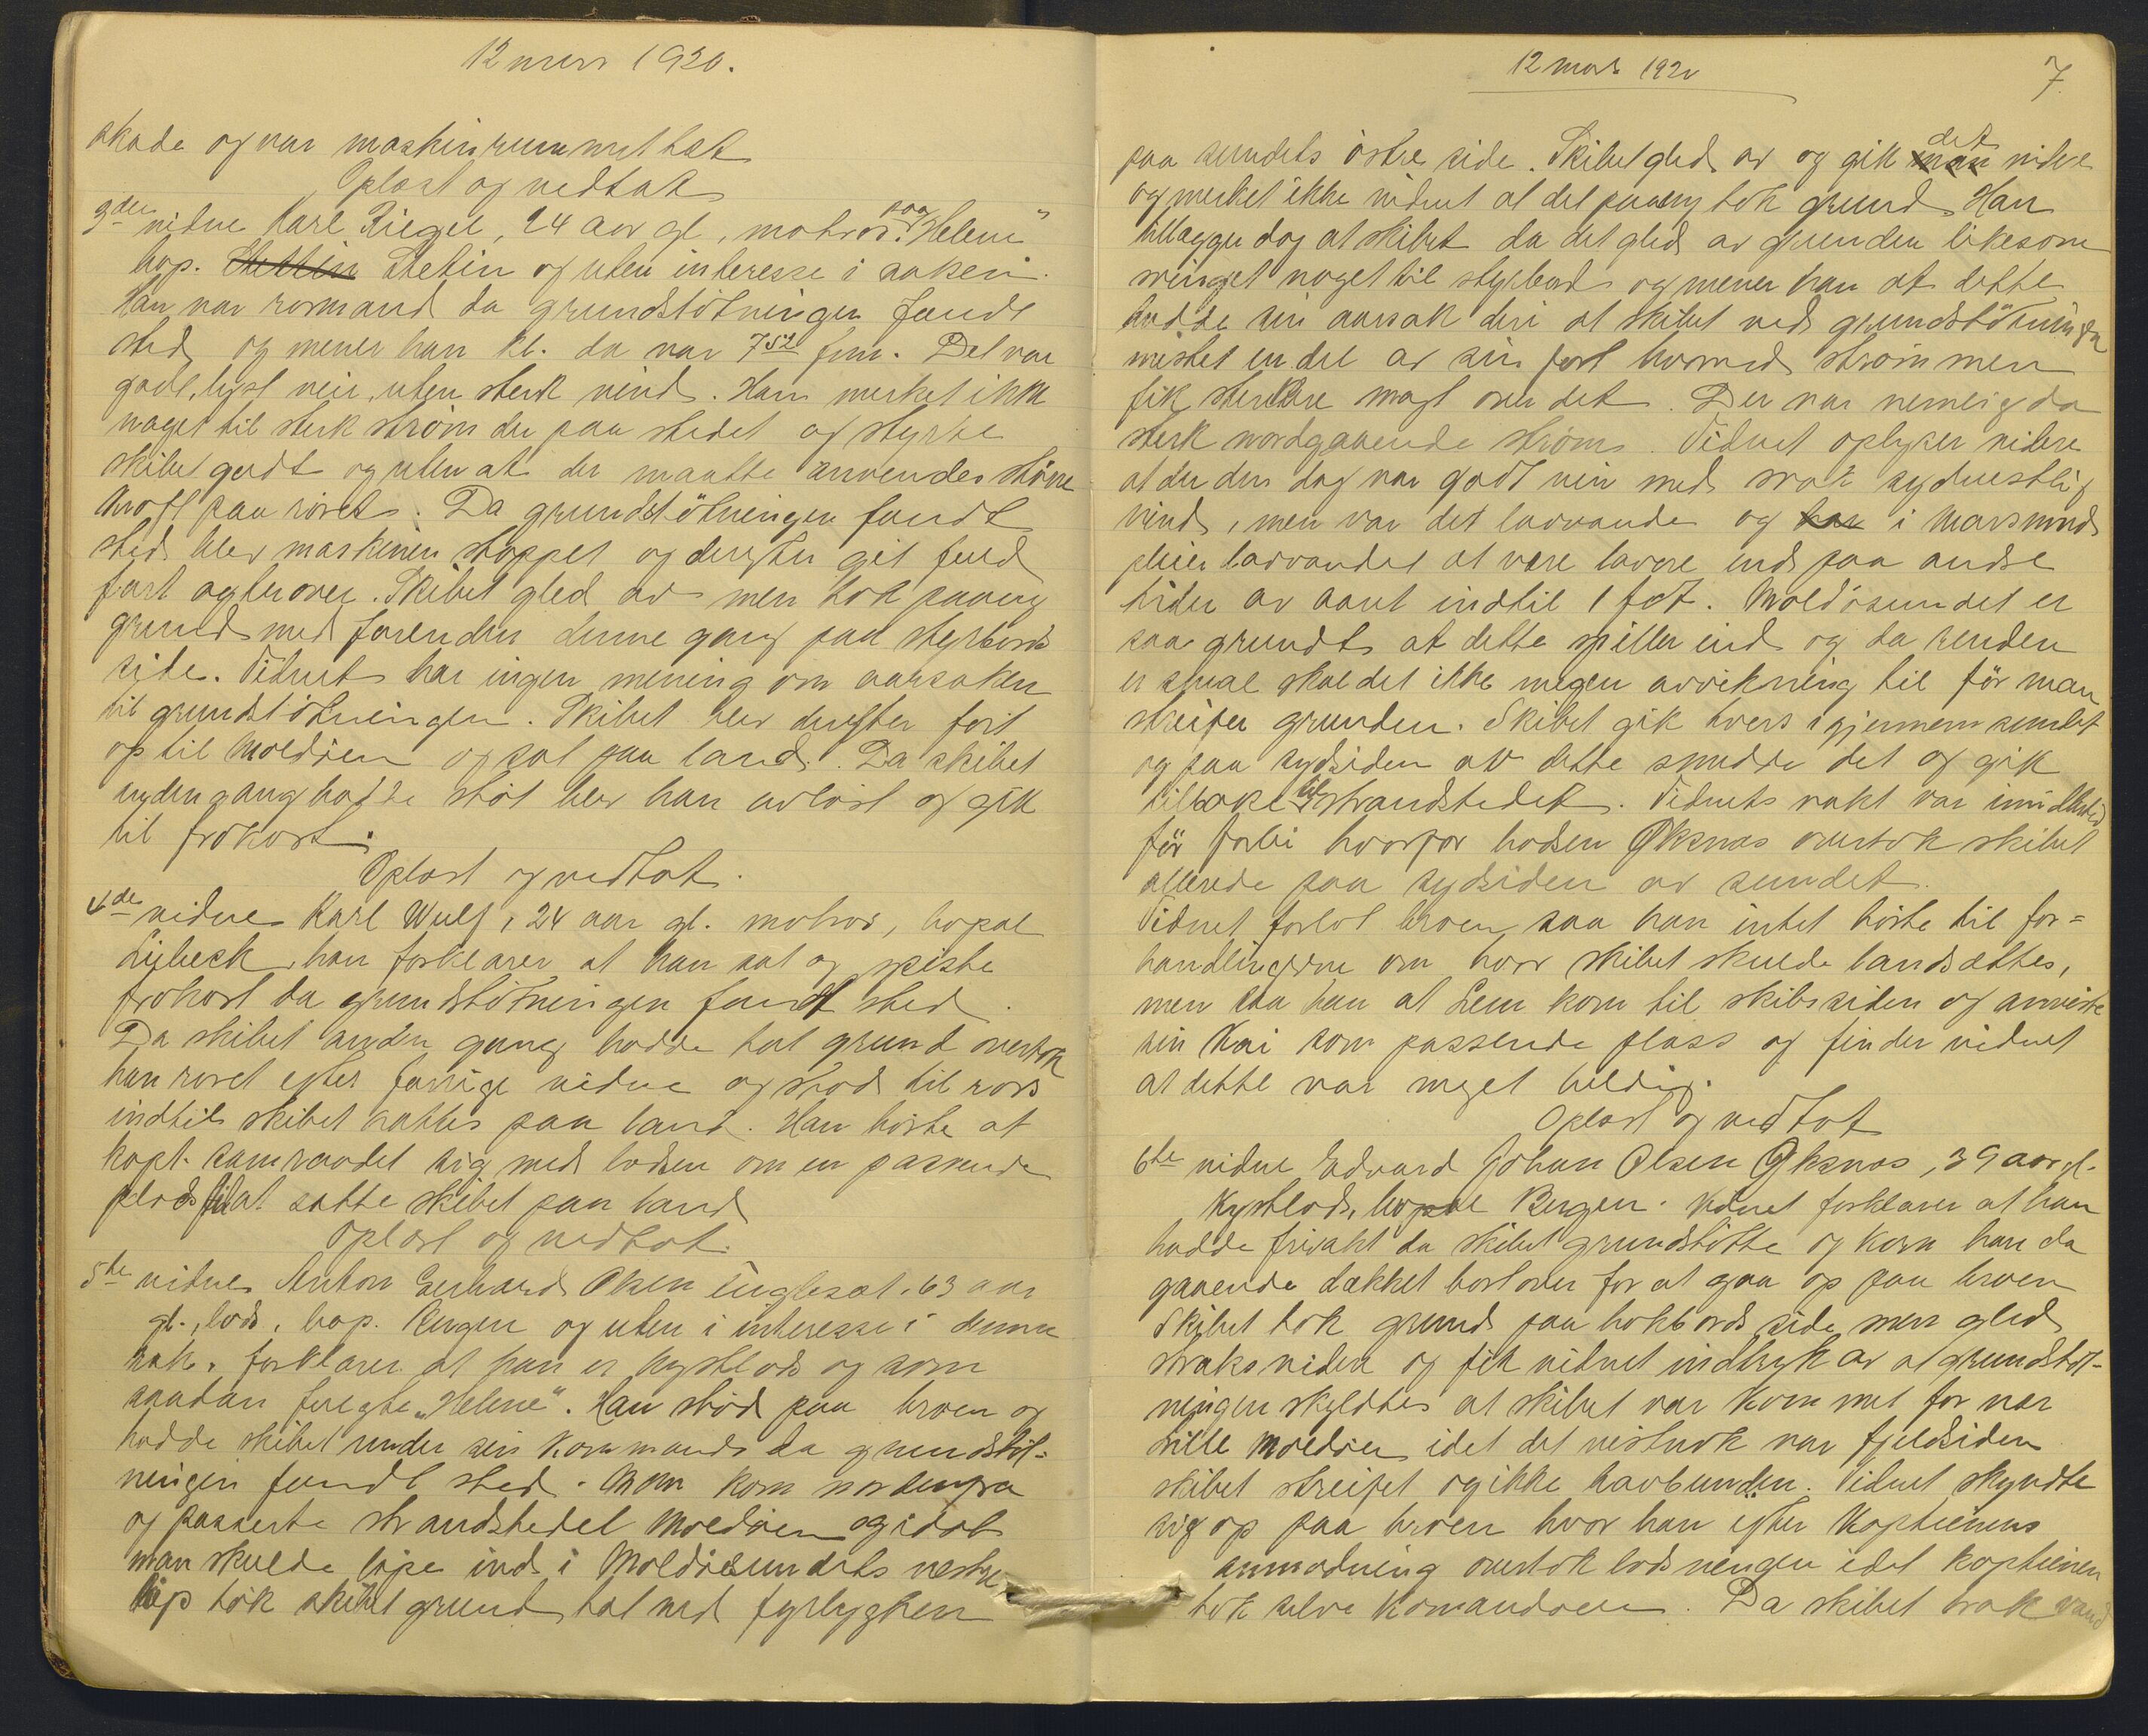 12 mars 1920.
skade og var maskinrummet tæt
Oplæst og vedtat
3die vidne Karl Riegel, 24 aar gl, matros paa "Helene"
bop. Stettin Stetin og uten interesse i saken.
Han var rormand da grundstötningen fandt
sted og mener han kl. da var 7 52 fm. Det var
godt, lyst veir, uten sterk vind. Han merket ikke
noget til sterk ström der paa stedet og styrte
skibet godt og uten at der maatte anvendes större
kraft paa roret. Da grundstötningen fandt
sted blev maskinen stoppet og derefter git fuld
fart agterover. Skibet gled av men tok paany
grund med forenden denne gang paa styrbords
side. Vidnet har ingen mening om aarsaken
til grundstötningen. Skibet blev derefter fört
op til Moldöen og sat paa land. Da skibet
anden gang hadde stöt blev han avlöst og gik
til frokost.
Oplæst og vedtat.
4de vidne Karl Wulf, 24 aar gl. matros, bopæl
Lübeck, han forklarer at han sat og spiste
frokost da grundstötningen fandt sted.
Da skibet anden gang hadde tat grund overtok
han roret efter forrige vidne og stod til rors
indtil skibet sattes paa land. Han hörte at
kapt. samraadet sig med lodsen om en passende
plads til at sætte skibet paa land
Oplæst og vedtat.
5te vidne Anton Gerhard Olsen Englesæt, 63 aar
gl., lods, bop. Bergen og uten i interesse i denne
sak, forklarer at han er kystlods og som
saadan fulgte "Helene". Han stod paa broen og
hadde skibet under sin kommando da grundstöt=
ningen fandt sted. Man kom nordenfra
og passerte strandstedet Moldöen og idet
man skulde löpe ind i Moldösundets vestre
löp tok skibet grund tæt ved fyrlygten
12 mars 1920
7
paa sundets östre side. Skibet gled av og gik man det videre
og merket ikke vidnet at det paany tok grund. Han
tillægger dog at skibet da det gled av grunden likesom
svinget noget til styrbord og mener han at dette
hadde sin aarsak deri at skibet ved grundstötningen
mistet en del av sin fart hvorved strömmen
fik sterkere magt over det. Der var nemlig da
sterk nordgaaende ström. Vidnet oplyser videre
at der den dag var godt veir med svak sydvestlig
vind, men var det lavvande og har i Marsmnd
pleier lavvandet at være lavere end paa andre
tider av aaret indtil 1 fot. Moldösundet er
saa grundt at dette spiller ind og da renden
er smal skal det ikke megen avvikning til för man
streifer grunden. Skibet gik tvers igjennem sundet
og paa sydsiden av dette snudde det og gik
tilbake til strandstedet. Vidnets vakt var imidlertid
för forbi hvorfor lodsen Øksnæs overtok skibet
allerede paa sydsiden av sundet.
Vidnet forlot broen saa han intet hörte til for=
handlingerne om hvor skibet skulde landsættes,
men saa han at Lem kom til skibssiden og anviste
sin Kai som passende plass og finder vidnet
at dette var meget heldig.
Oplæst og vedtat
6te vidne Edvard Johan Olsen Øksnæs, 39 aar gl.
Kystlods, bopæl Bergen. Vidnet forklarer at han
hadde frivakt da skibet grundstötte og kom han da
gaaende dækket bortover for at gaa op paa broen
Skibet tok grund paa bakbords side, men gled
straks videre og fik vidnet indtryk av at grundstöt-
ningen skyldtes at skibet var kommet for nær
lille Moldöen idet det nistnok var fjeldsiden
skibet streifet og ikke havbunden. Vidnet skyndte
sig op paa broen hvor han efter Kapteinens
anmodning overtok lodsningen idet kapteinen
tok selve Komandoen. Da skibet trak vand